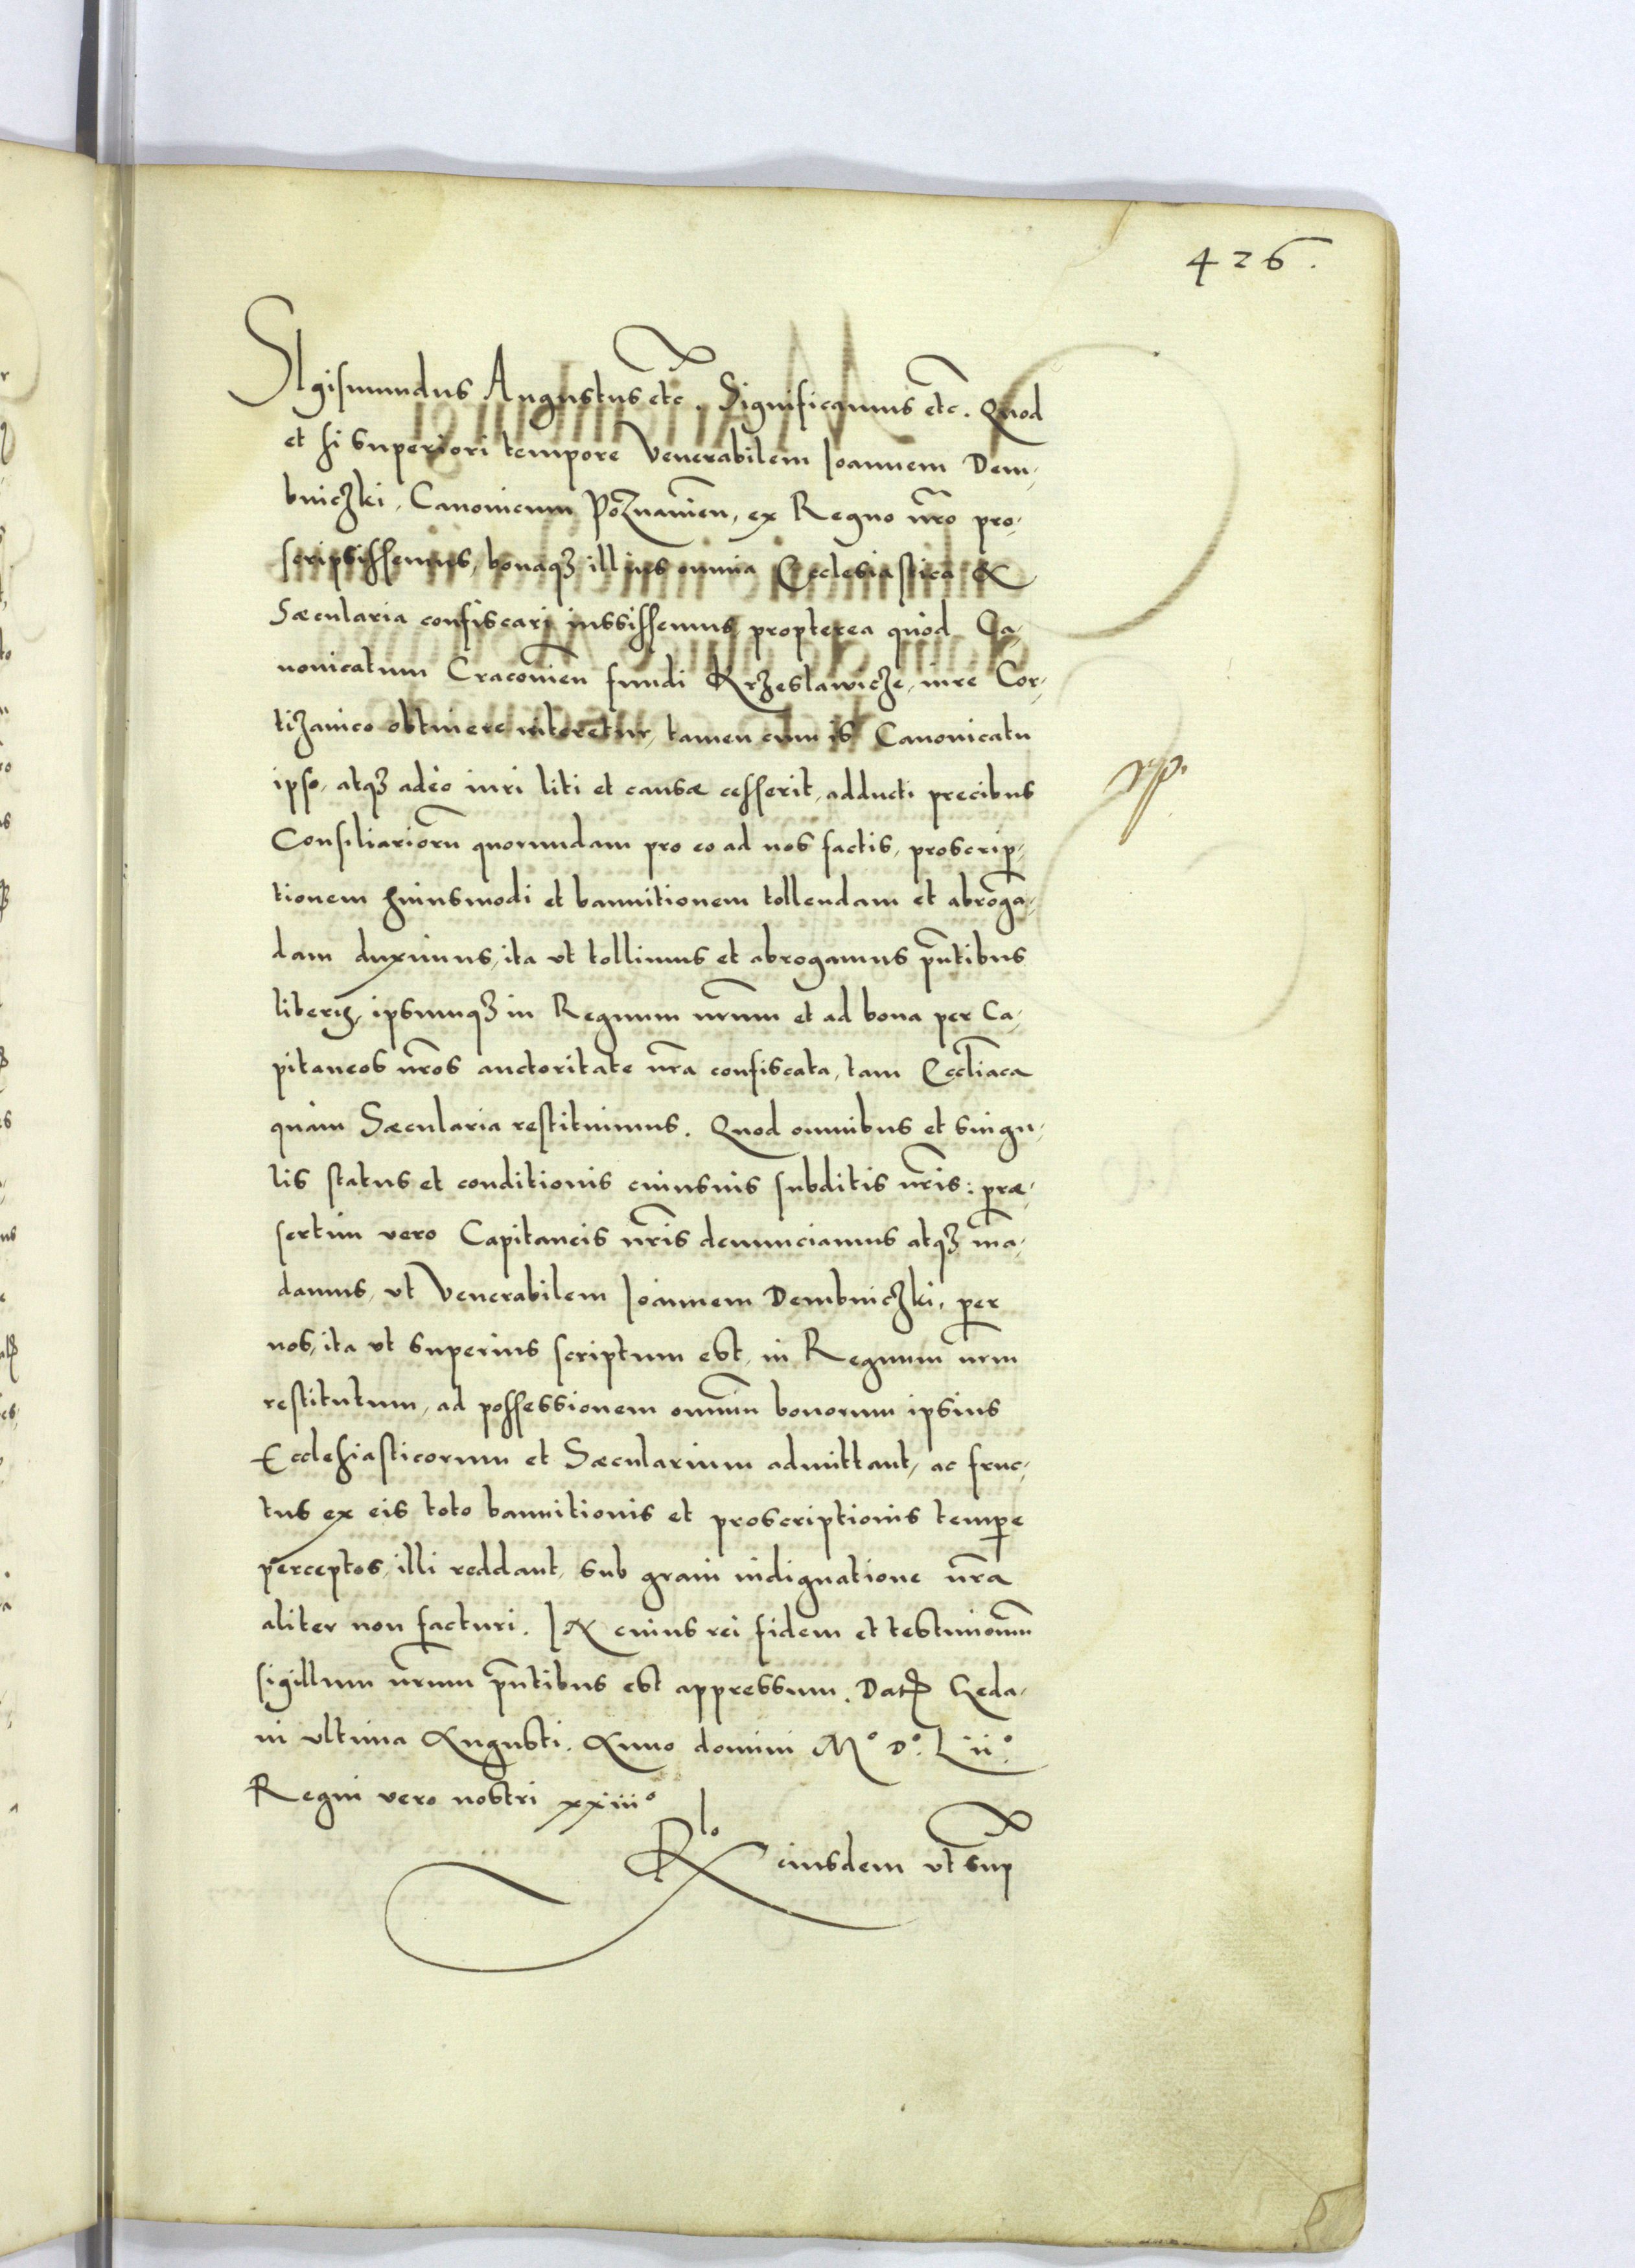 426.
SIgismundus Augustus etc. Significamus etc. Quod
et si superiori tempore Venerabilem Ioannem Dem,
bniczki, Canonicum Poznanien, ex Regno nro pro,
scripsissemus, bonaqz illius omnia Ecclesiastica &
Sæcularia confiscari iussissemus propterea quòd Ca,
nonicatum Cracovien fundi Krzeslawicze, iure Cor,
tizanico obtinere niteretur, tamen cum is Canonicatu
ipso, atqz adeò iuri liti et causæ cesserit, adducti precibus
Consiliarioru quorundam pro eo ad nos factis, proscrip,
tionem huiusmodi et bannitionem tollendam et abroga,
dam duximus, ita ut tollimus et abrogamus pntibus
literis, ipsumqz in Regnum nrum et ad bona per Ca,
pitaneos nros auctoritate nra confiscata, tam Ecclīaca
quàm Sæcularia restituimus. Quod omnibus et singu,
lis status et conditionis cuiusuis subditis nris: præ,
sertim vero Capitaneis nris denunciamus atqz ma,
damus, ut Venerabilem Ioannem Dembniczki, per
nos, ita ut superius scriptum est, in Regnum nrm
restitutum, ad possessionem omniu bonorum ipsius
Ecclesiasticorum et Sæcularium admittant, ac fruc,
tus ex eis toto bannitionis et proscriptionis tempe
perceptos, illi reddant, sub graui indignatione nra
aliter non facturi. IN cuius rei fidem et testimonium
sigillum nrum pntibus est appressum. Dat Geda,
ni ultima Augusti. Anno domini M° D° Lii°
Regni vero nostri xxiii°
Rlo eiusdem ut sup